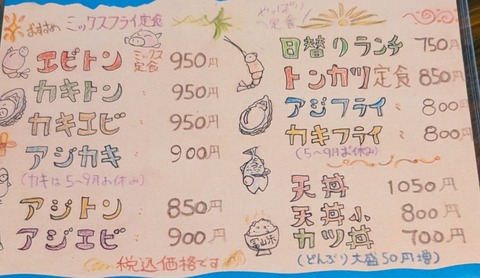 おすすめ ミックスフライ定食
エビトン ミックス定食 950円
カキトン 〃 950円
カキエビ 〃 950円
アジカキ 〃 900円
(カキは5~9月お休み)
アジトン 〃 850円
アジエビ 〃 900円
税込価格です
やっぱり定食
日替りランチ 750円
トンカツ定食 850円
アジフライ 〃 800円
カキフライ 〃 800円
(5~9月お休み)
天丼 1050円
天丼小 800円
カツ丼 700円
(どんぶり大盛50円増)